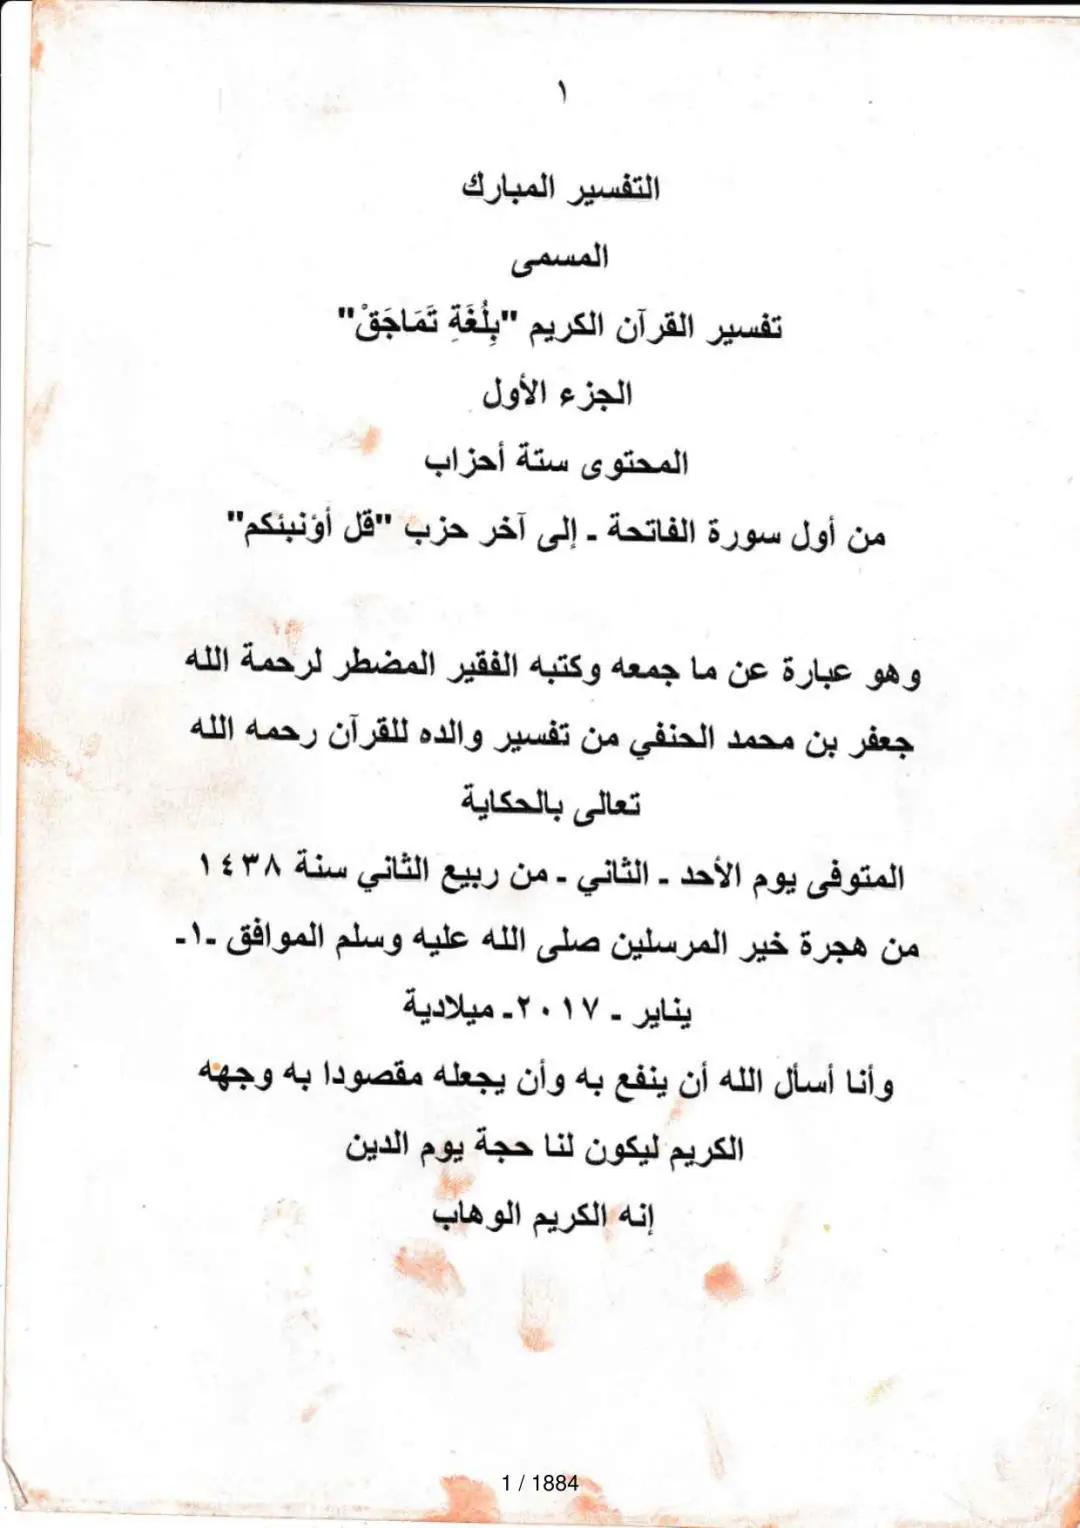 ١
التفسير المبارك
المسمى
تفسير القرآن الكريم "بِلُغَةِ تَمَاجَقْ"
الجزء الأول
المحتوى ستة أحزاب
من أول سورة الفاتحة ـ إلى آخر حزب "قل أؤنبئكم"
وهو عبارة عن ما جمعه وكتبه الفقير المضطر لرحمة الله
جعفر بن محمد الحنفي من تفسير والده للقرآن رحمه الله
تعالى بالحكاية
المتوفى يوم الأحد ـ الثاني ـ من ربيع الثاني سنة ١٤٣٨
من هجرة خير المرسلين صلى الله عليه وسلم الموافق ـ١ـ
يناير ـ ٢٠١٧ـ ميلادية
وأنا أسأل الله أن ينفع به وأن يجعله مقصودا به وجهه
الكريم ليكون لنا حجة يوم الدين
إنه الكريم الوهاب
1 / 1884